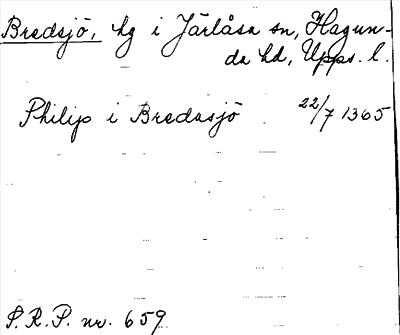 Bredsjö, hg i Järlåsa sn, Hagun-
da hd, Upps. l.
Philip i Bredasjö 22/7 1365
S.R.P. nr. 659